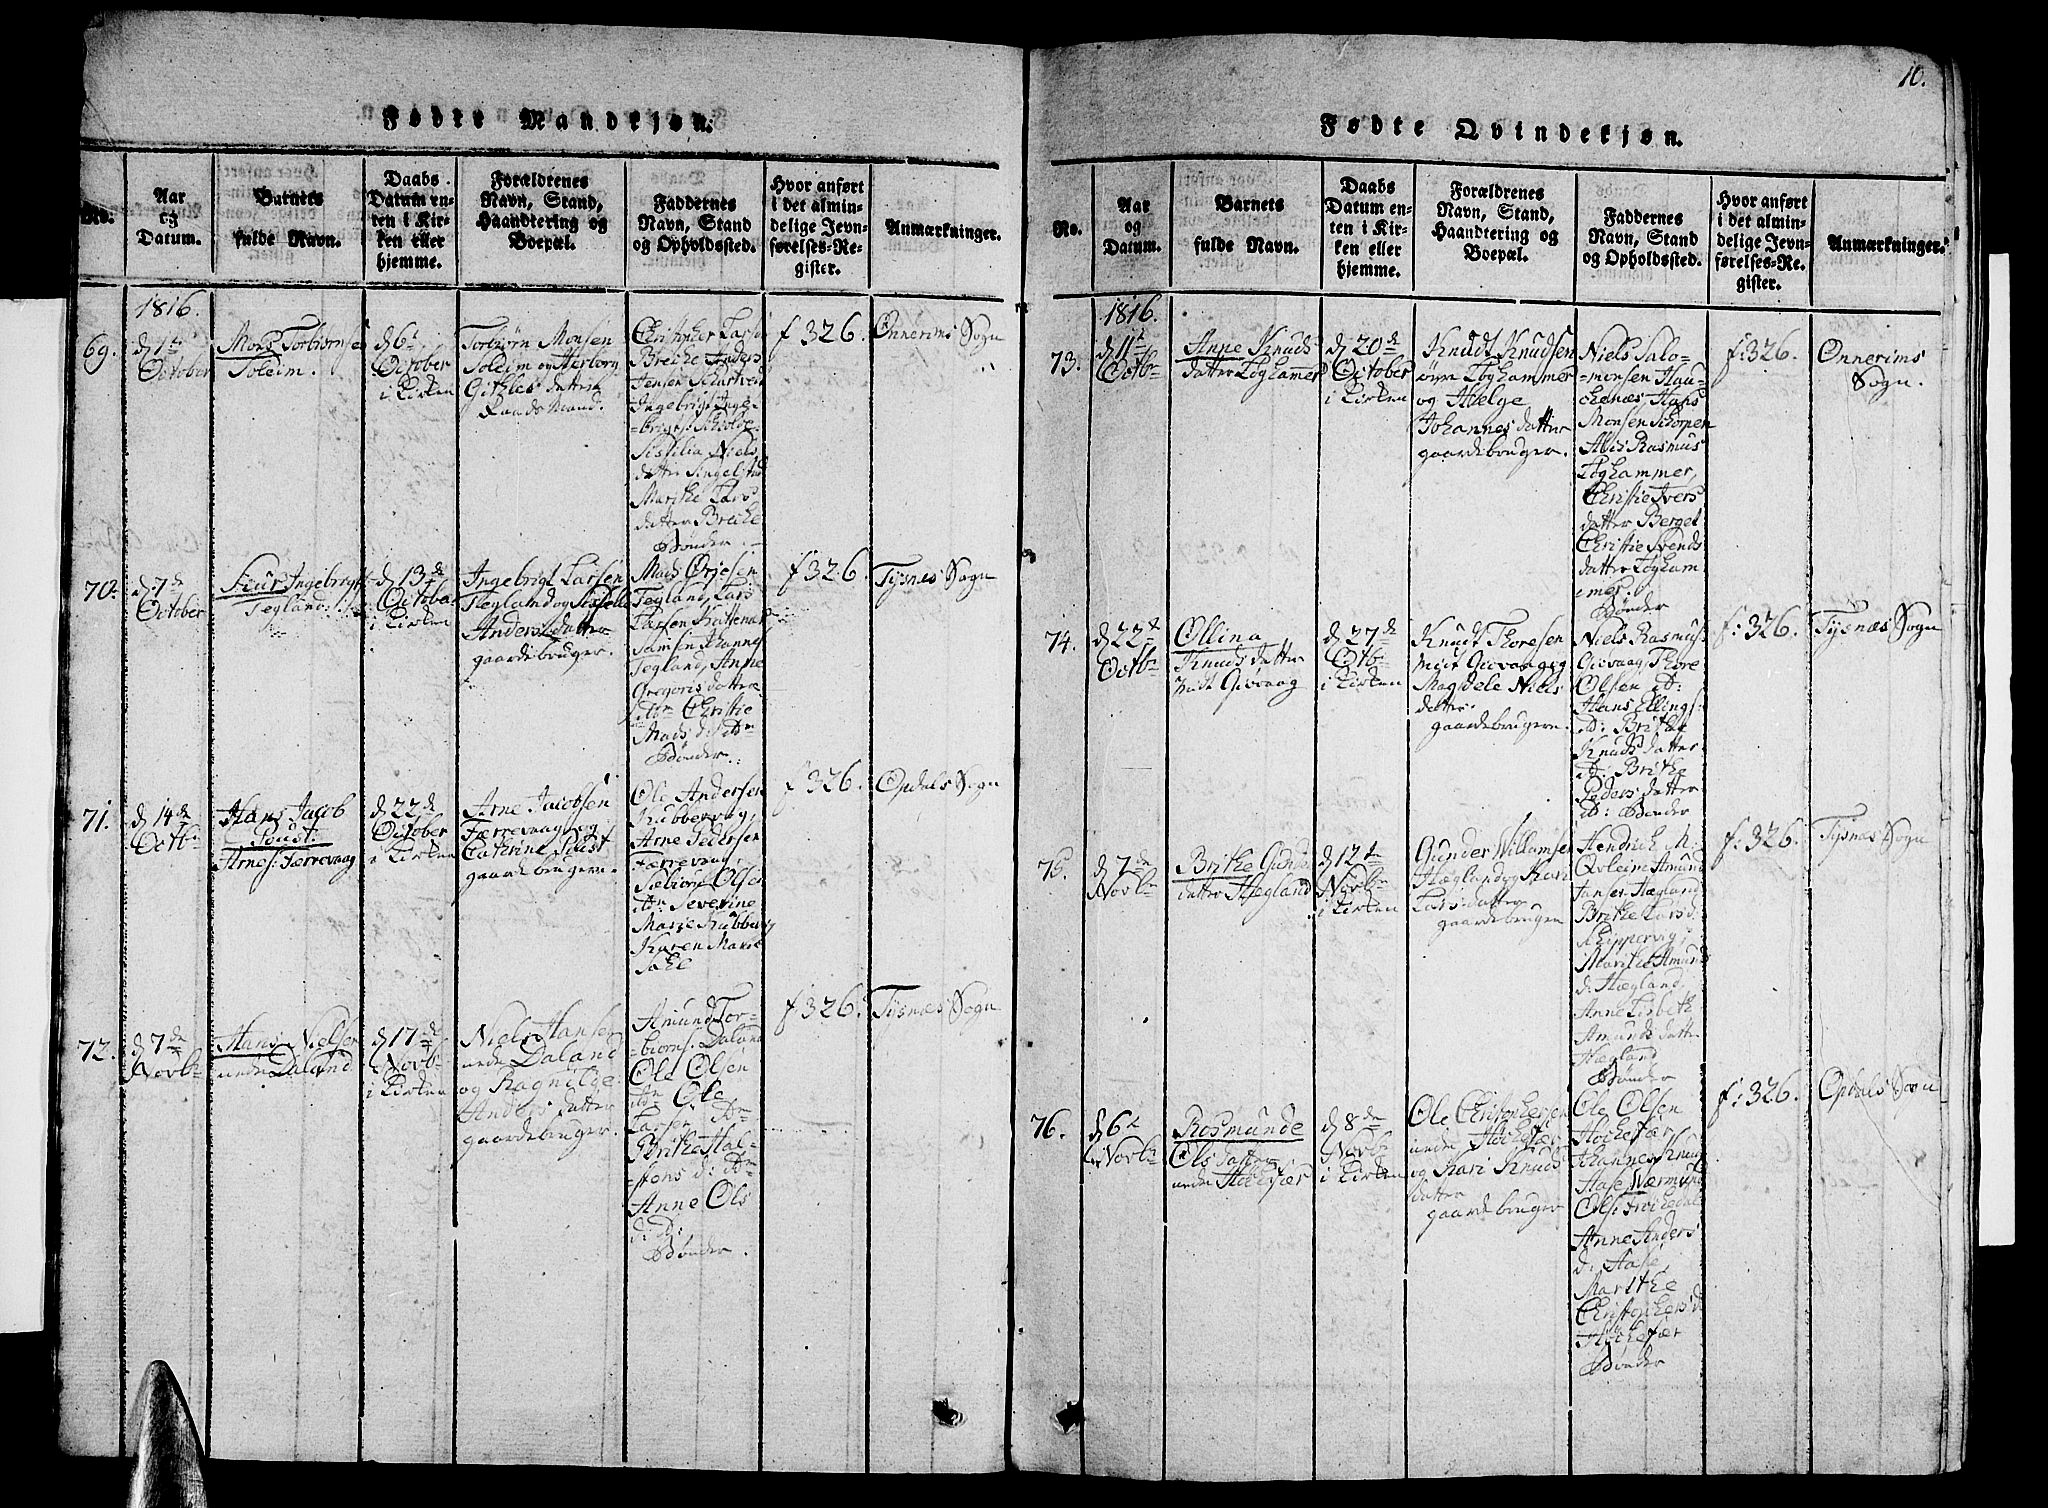 10.
Fødte Mandkjøn.
No.
Aar
og
Datum.
Barnets
fulde Navn.
Daabs
Datum en-
ten i Kir-
ken eller
hjemme.
Forældrenes
Navn, Stand,
Haandtering og
Boepæl.
Faddernes
Navn, Stand
og Opholdssted.
Hvor anført
i det almin-
delige Jevn-
førelses-Re-
gister.
Anmærkninger.
1816.
69.
d 1te
October
Mons Torbiørnsen
Soleim.
d 6te
October
i Kirken
Torbiørn Monsen
Soleim og Herborg
Gitles datter
Christopher Larsen
Breche Anders
Jensen
Ingebrigt Inge-
brigts:
Sissilia Niels
datter Singelstad
Marthe Lars
datter Breche
Bønder.
f 326.
Onnerims Sogn
70.
d 7de
October
Siur Ingebrigts
Tegland
d 13de
October
i Kirken
Ingebrigt Larsen
Tegland og Sissele
Anders datter
gaardebruger.
Mads Ørjesen
Tegland, Lars
Larsen
Samsen Johannes
Tegland, Anne
Gregoris datter
Dn Christie
Mads d: Dn
Bønder.
f 326.
Tysnæs Sogn
71.
d 14de
Octbr
Hans Jacob
Poust
Arnes: Færrevaag
d 22de
October
i Kirken
Arne Jacobsen
Færrevaag og
Cathrine Poust
gaardebrugere.
Ole Andersen
Hubbervog,
Arne Pedersen
Færrevaag,
Olsen
Dn Severine
Marie Hubbervog
Karen Marie
f 326.
Opdals Sogn
72.
d 7de
Novbr
Hans Nielsen
nedre Daland
d 17de
Novbr
i Kirken
Niels Hansen
nedre Daland
og Ragnilde
Anders datter
gaardebruger.
Amund Tor-
biorns: Daland
Ole Olsen
Dn Ole
Larsen Dn
Brithe Hal-
d: Dn
Anne Ols
d: D:
Bønder.
f 326.
Tysnæs Sogn
Fødte Qvindekjøn.
No.
Aar
og
Datum.
Barnets
fulde Navn.
Daabs
Datum en-
ten i Kir-
ken eller
hjemme.
Forældrenes
Navn, Stand,
Haandtering og
Boepæl.
Faddernes
Navn, Stand
og Opholdssted.
Hvor anført
i det almin-
delige Jevn-
førelses-Re-
gister.
Anmærkninger.
1816.
73.
d 11te
Octbr
Anne Knuds
datter Løghammer
d 20de
October
i Kirken
Knudt Knudsen
øvre Løghammer
og Helge
Johannes datter
gaardebruger.
Niels Salo-
monsen Hau-
chenæs Hans
Monsen
Rasmus
Løghammer,
Christie Ivers
datter Berget
Christie Svends
datter Løgham
mer.
Bønder
f: 326.
Onnerims
Sogn.
74.
d 22de
Octbr
Ollina
Knuds datter
Midt Giøvaag
d 27de
Octbr
i Kirken
Knudt Thoresen
Midt Giøvaag og
Magdele Niels
datter
gaardebrugere.
Niels Rasmus:
Giøvaag Thore
Olsen D:
Hans Ellings:
D: Brithe
Knuds datter
D: Brithe
Peders datter
D: Bønder
f: 326.
Tysnæs Sogn
75.
d 7de
Novbr
Brithe Gunder
datter Hægland
d 12te
Novbr
i Kirken
Gunder Willamsen
Hægland og Kari
Lars datter
gaardebruger
Hendrich M:
Qvleim Amund
Jansen Hægland
Brithe Lars d:
Skippervig,
Marithe Amunds
d: Hægland
Anne Lisbeth
Amunds datter
Hægland
Bønder
f: 326.
Tysnæs Sogn
76.
d 6te
Novbr
Rosmunde
Ols datter
nedre Hochefær
d 8de
Novbr
i Kirken
Ole Christophersen
nedre Hochefær
og Kari Knuds
datter
gaardebruger
Ole Olsen
Hochefær
Johannes Knuds
Aase Wærmund
Ols:
Anne Anders
d: Aase,
Marithe
Christophers d
Hochefær
Bønder
f: 326.
Opdals Sogn